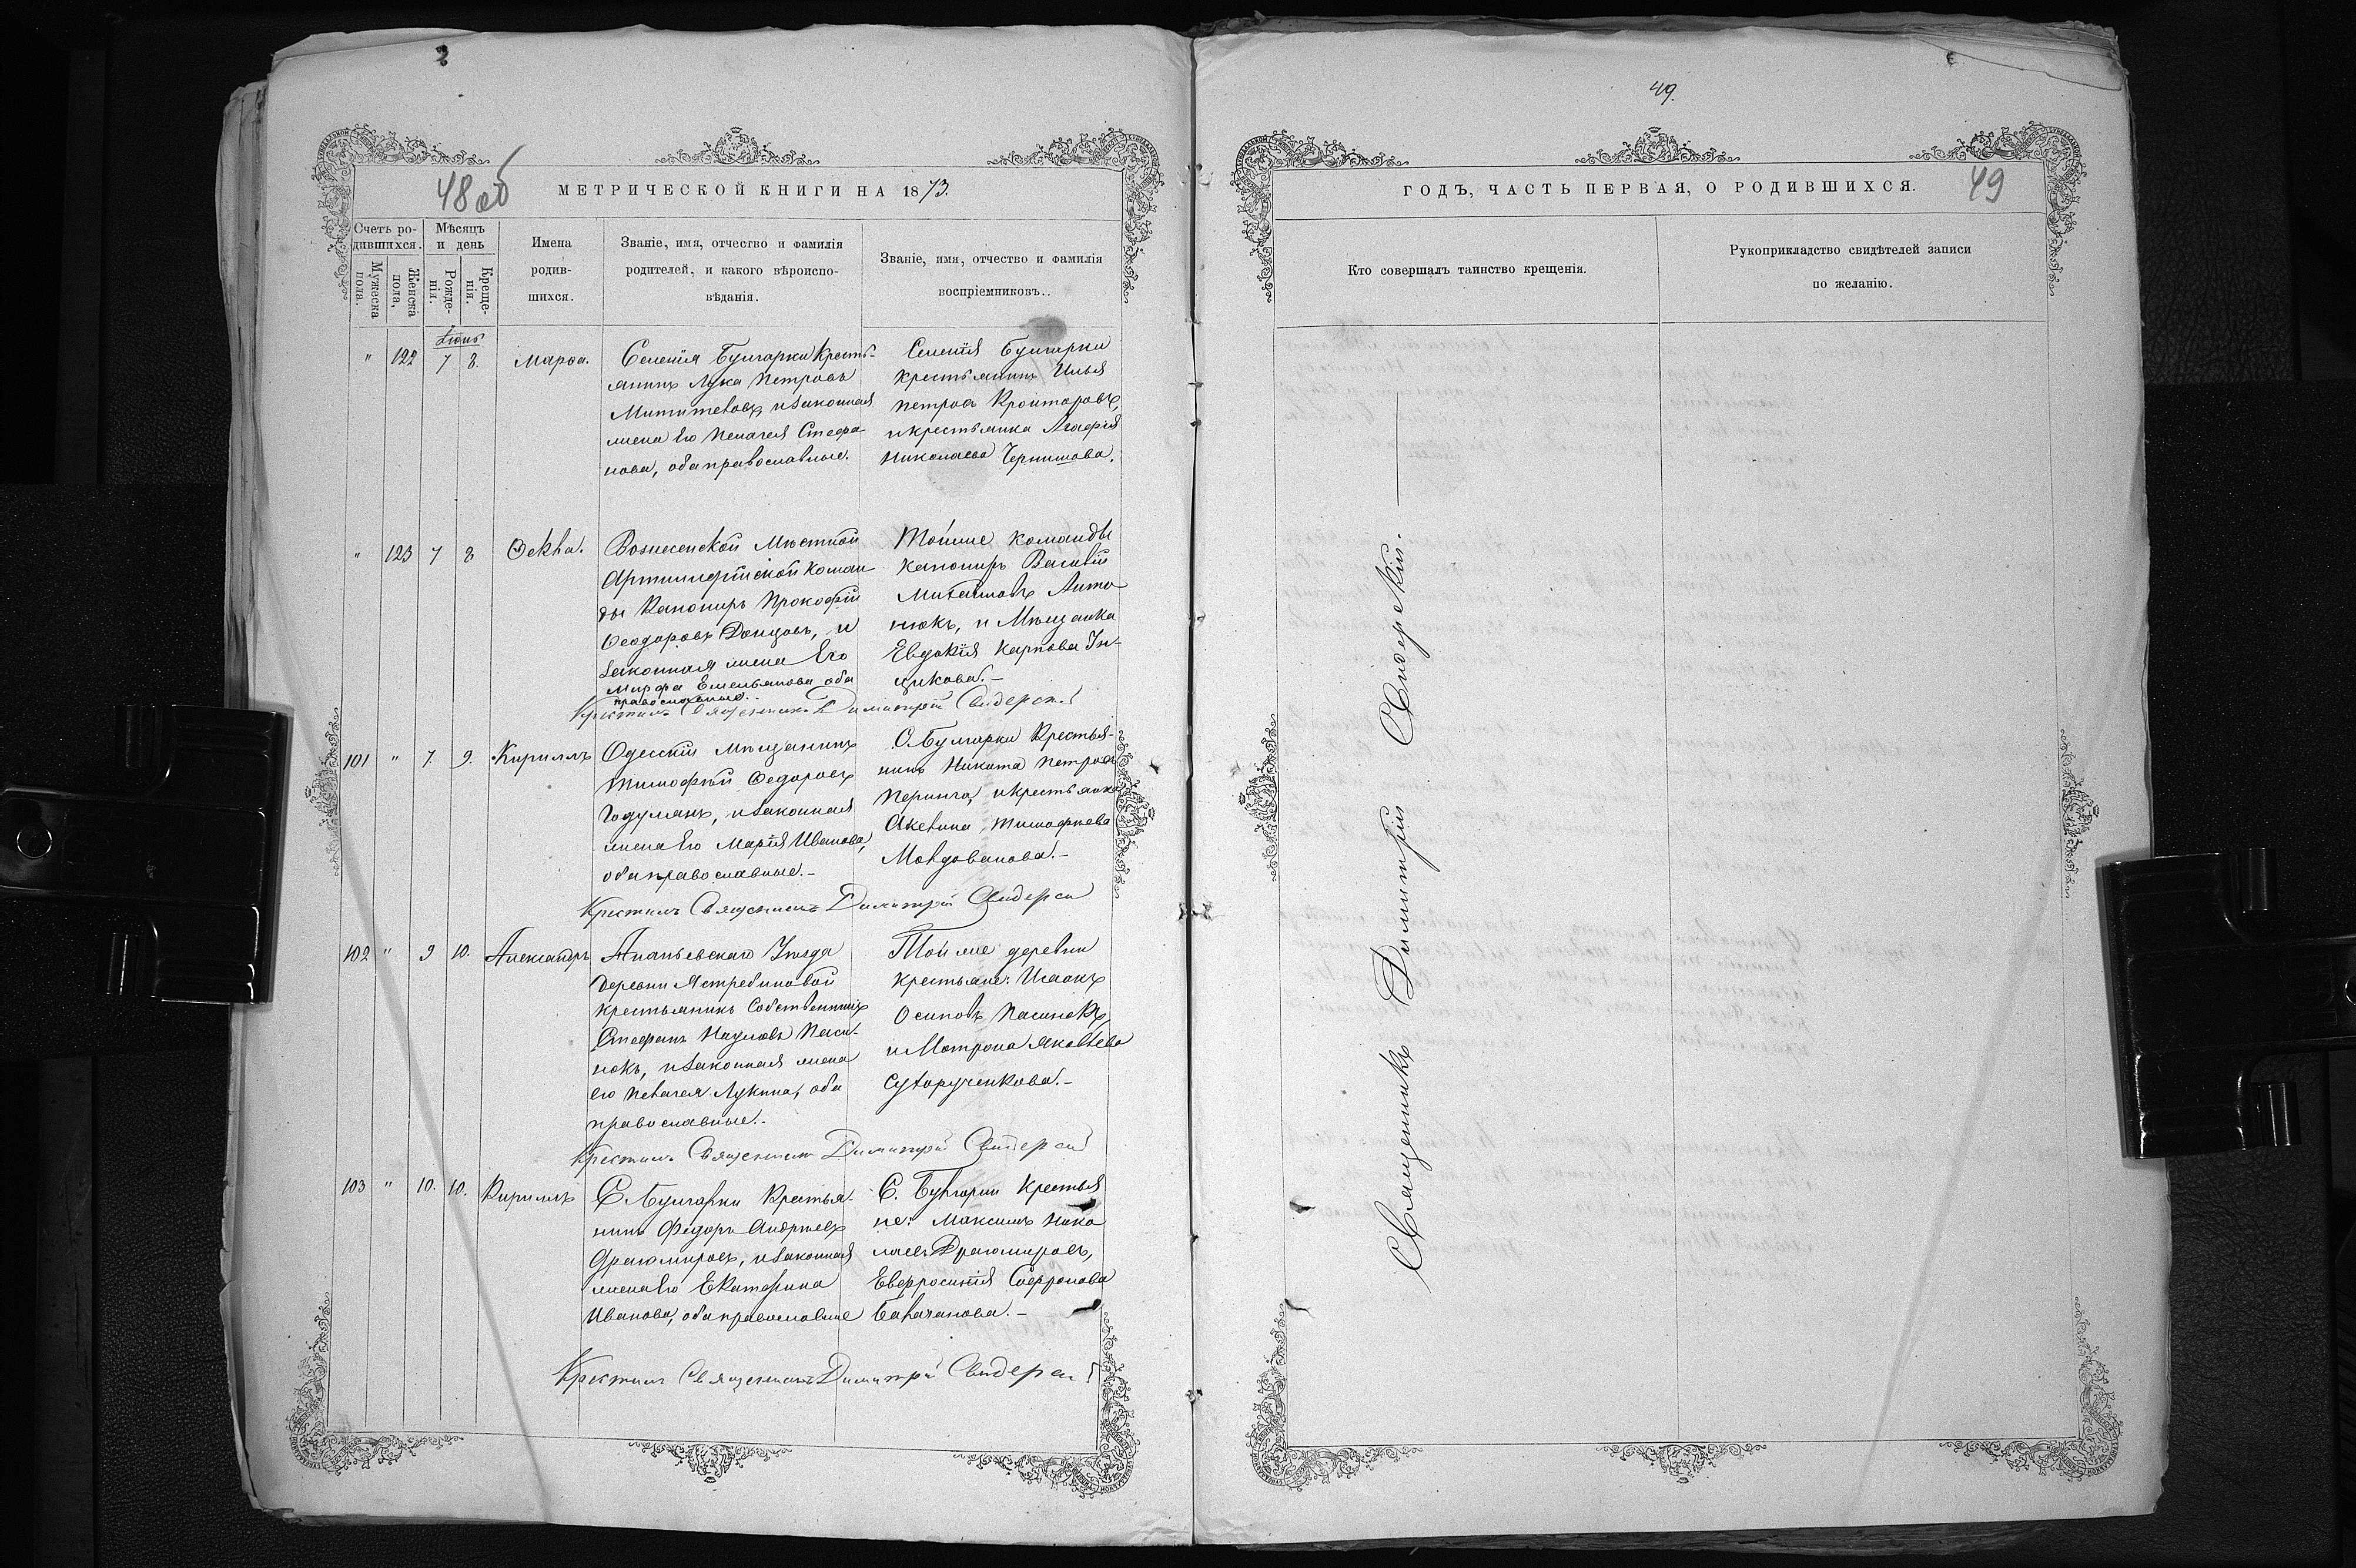 49.
48 об
МЕТРИЧЕСКОЙ КНИГИ НА 1873.
Счетъ ро-
дившихся.
Мужеска
пола.
Женска
пола,
Мѣсяцъ
и день
Рожде-
нія.
Креще-
нія.
Имена
родив-
шихся.
Званіе, имя, отчество и фамилія
родителей, и какого вѣроиспо-
вѣданія.
Званіе, имя, отчество и фамилія
воспріемниковъ..
" 122 7 8. Марѳа.
Селенія Булгарки Кресть-
янинъ Лука Петровъ
и законная
жена Его Пелагея Стефа-
нова, оба православные.
Селенія Булгарки
крестьянинъ Илья
Петровъ Кройторовъ,
и крестьянка Агафія
Николаева Чернишова.
" 123 7 8 Ѳекла.
Вознесенской Мѣстной
Артиллерійской Коман
ды Канониръ Прокофій
Ѳеодоровъ Донцовъ, и
законная жена Его
Марфа Емельянова оба
православные.
Тойже команды
канониръ Василій
Михайловъ Анто
нюкъ, и Мѣщанка
Евдокія Карпова
Крестилъ Священникъ Димитрій Свидерскій
101 " 7. 9. Кириллъ
Одесскій мѣщанинъ
Тимофѣй Ѳедоровъ
Годулянъ, и законная
жена Его Марія Иванова,
оба православные.-
С. Булгарки Крестья-
нинъ Никита Петровъ
и крестьянка
Акелина Тимофѣева
Молдованова.-
Крестилъ Священникъ Димитрій Свидерскій
102 " 9 10. Александръ
Ананьевскаго Уѣзда
деревни Ястребиновой
крестьянинъ Собственникъ
Стефанъ Наумовъ Паси-
нокъ, и законная жена
его Пелагея Лукина, оба
православные.-
Той же деревни
крестьяне: Исаакъ
Осиповъ Пасинокъ,
и Матрона Яковлева
Сухорученкова.-
Крестилъ Священникъ Димитрій Свидерскій
103 " 10. 10. Кириллъ
С. Булгарки Крестья-
нинъ Федоръ Андреевъ
Драгомировъ, и законная
жена Его Екатерина
Иванова, оба православные
С. Булгарки Крестья
не: Максимъ Нико
лаевъ Драгомировъ,
Евфросинія Софронова
Балачанова.-
Крестилъ Священникъ Димитрій Свидерскій
ГОДЪ, ЧАСТЬ ПЕРВАЯ, О РОДИВШИХСЯ.
49
Кто совершалъ таинство крещенія.
Рукоприкладство свидѣтелей записи
по желанію.
Священникъ Димитрій Свидерскій.